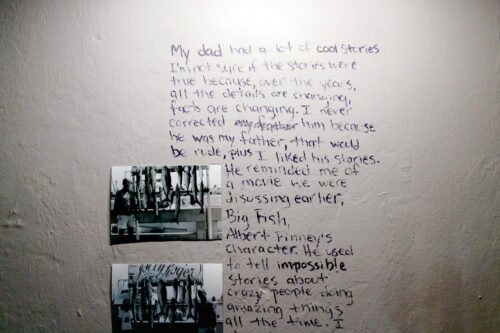 My dad had a lot of cool stories
I'm not sure if the stories were
true because, over the years,
all the details are changing,
facts are changing. I never
corrected my father him because
he was my father, that would
be rude, plus I liked his stories.
He reminded me of
a movie we were
disussing earlier,
Big Fish,
Albert Finney's
character. He used
to tell impossible
stories about
crazy people doing
amazing things
all the time. I
Jolly Roger